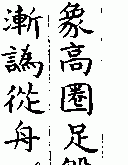 象高圈足
漸譌從舟。